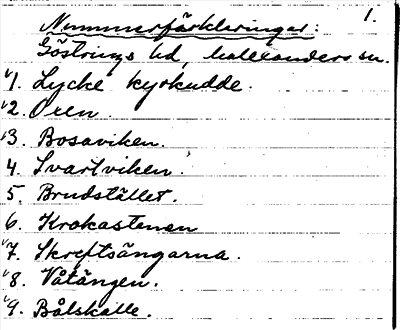 1.
Nummerförklaringar:
Göstrings hd, kalexanders sn.
1. Lycke kyrkudde.
2. Ören.
3. Bosaviken.
4. Svartviken.
5. Brudstället.
6. Krokastenen
7. Skreftsängarna.
8. Våtängen.
9. Bålskalle.